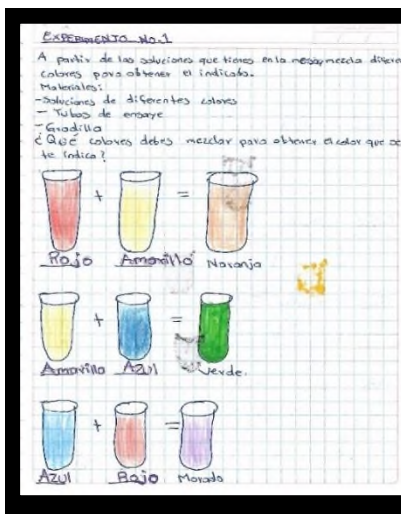 EXPERIMENTO No.1
A partir de las soluciones que tienes en la mesa, mezcla difere
colores para obtener el indicado.
Materiales:
-Soluciones de diferentes colores
- Tubos de ensaye
- Gradilla
¿Qué colores debes mezclar para obtener el color que se
te indica?
+ =
Rojo Amarillo Naranja
+ =
Amarillo Azul Verde.
+ =
Azul Rojo Morado